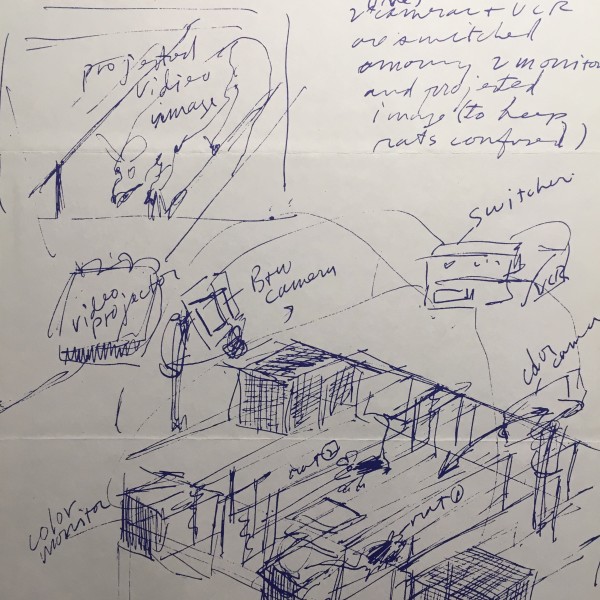 2 cameras + VCR
are switched
among 2 monitor
and projected
image (to keep
rats confused)
projected
video
image
switcher
VCR
B+W
camera
video
projector
color
camera
rat 2
rat 1
color
monitor